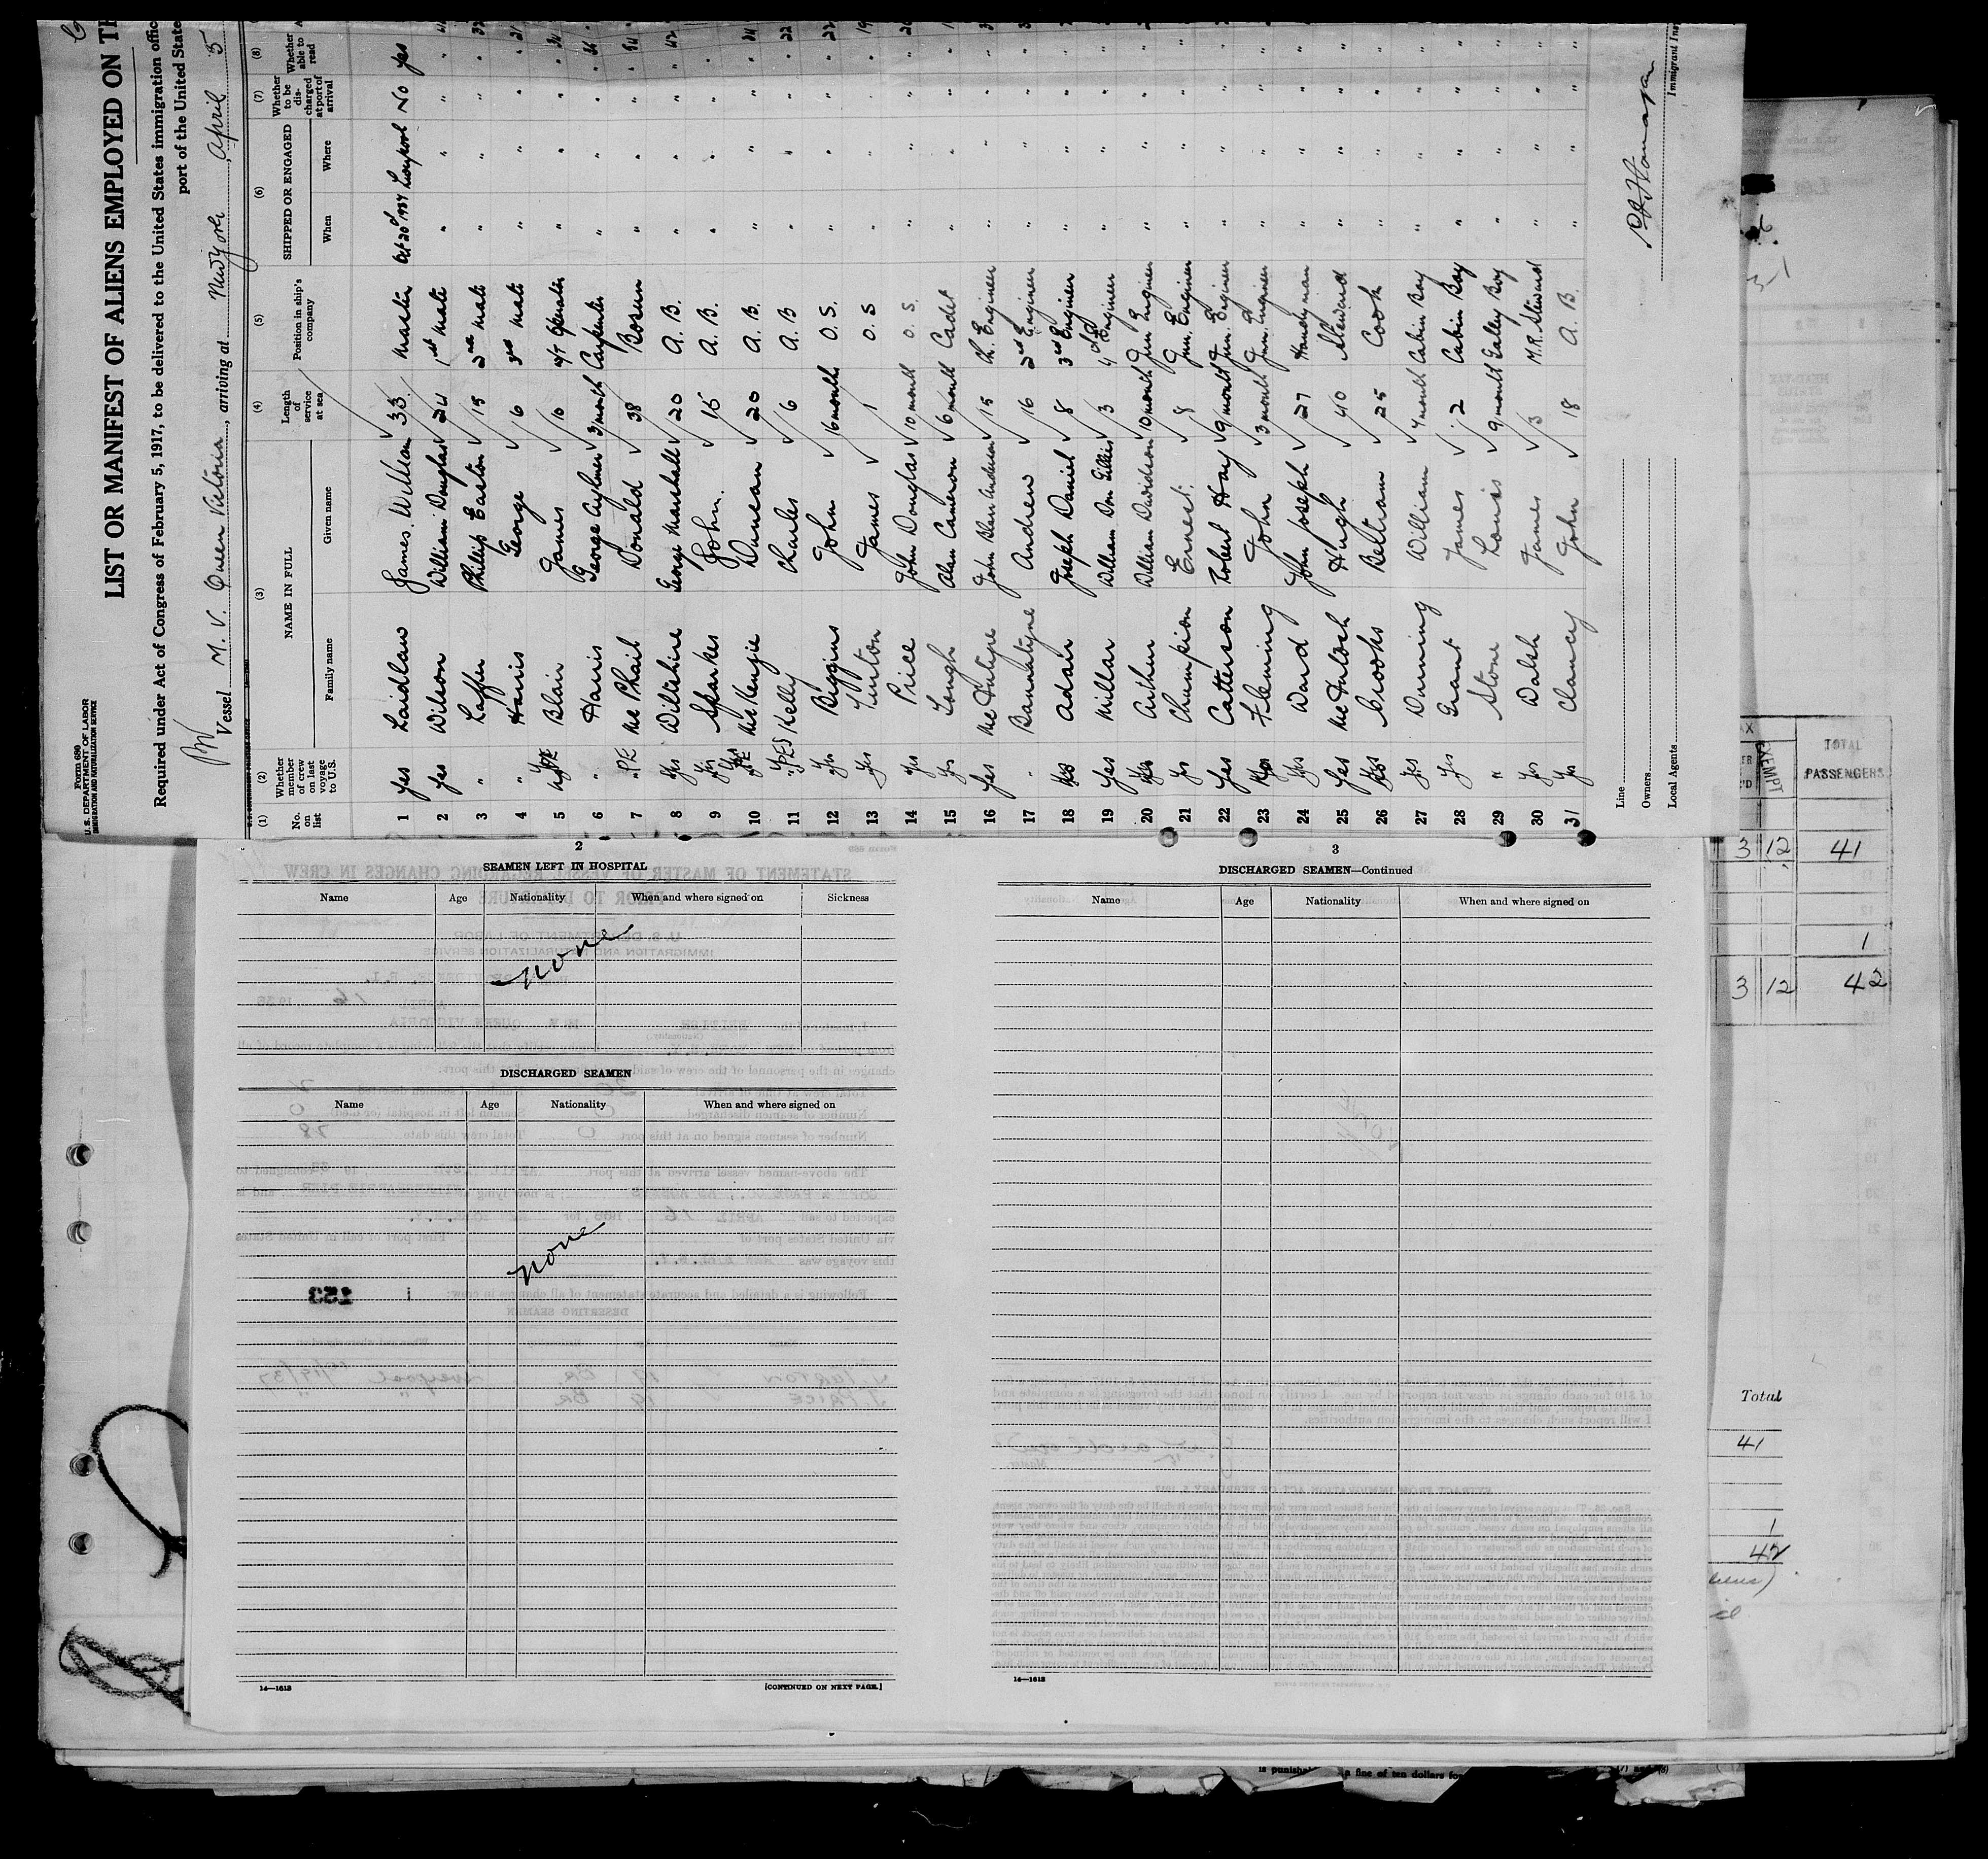 Form 680
U. S. DEPARTMENT OF LABOR
IMMIGRATION AND NATURALIZATION SERVICE
LIST OR MANIFEST OF ALIENS EMPLOYED ON TH
Required under Act of Congress of February 5, 1917, to be delivered to the United States immigration offic
port of the United State
Vessel M. V. Queen Victoria, arriving at New York, April 5
(1) (2) (3) (4) (5) (6) (7) (8)
No. on list
Whether member of crew on last voyage to U.S.
NAME IN FULL
Family name Given name
Length of service at sea
Position in ship's company
SHIPPED OR ENGAGED
When Where
Whether to be discharged at port of arrival
Whether able to read
1 Yes Laidlaw James William 33 Master Oct 20th 1937 Liverpool No Yes
2 Yes Wilson William Douglas 24 1st Mate " " " "
3 " Laffin Phillip Easton 15 2nd Mate " " " "
4 " Harris George 6 3rd Mate " " " "
5 Blair James 10 W/T Operator " " " "
6 " Harris George Aylmer 3 month Carpenter " " " "
7 " Mc Phail Donald 38 Bosun " " " "
8 Yes Wiltshire George Marshall 20 A. B. " " " "
9 Yes Sparkes John 15 A. B. " " " "
10 Yes Mc Kenzie Duncan 20 A. B. " " " "
11 " Kelly Charles 6 A. B " " " "
12 Yes Biggins John 16 months O. S. " " " "
13 Yes Turton James 1 O. S " " " "
14 Yes Price John Douglas 10 month O. S. " " " "
15 Yes Lough Alan Cameron 6 month Cadet " " " "
16 Yes Mc Intyre John Blair Anderson 15 Ch. Engineer " " " "
17 " Bannatyne Andrew 16 2nd Engineer " " " "
18 Yes Adair Joseph Daniel 8 3rd Engineer " " " "
19 Yes Millar William Don Gillies 3 4th Engineer " " " "
20 Yes Arthur William Davidson 10 month Jun. Engineer " " " "
21 Yes Champion Ernest 8 Jun. Engineer " " " "
22 Yes Catterson Robert Hay 9 month Jun. Engineer " " " "
23 Yes Fleming John 3 month Jun. Engineer " " " "
24 Yes Ward John Joseph 27 Handyman " " " "
25 Yes Mc Intosh Hugh 40 Steward " " " "
26 Yes Crooks Beltram 25 Cook " " " "
27 Yes Dunning William 4 month Cabin Boy " " " "
28 Yes Grant James 2 Cabin Boy " " " "
29 " Stone Louis 9 month Galley Boy " " " "
30 Yes Walsh James 3 M.R. Steward " " " "
31 Yes Clancy John 18 A. B. " " " "
Line
Owners
Local Agents
Immigrant Ins
2
SEAMEN LEFT IN HOSPITAL
Name Age Nationality When and where signed on Sickness
None
DISCHARGED SEAMEN
Name Age Nationality When and where signed on
None
14—1613
[CONTINUED ON NEXT PAGE.]
3
DISCHARGED SEAMEN—Continued
Name Age Nationality When and where signed on
14—1613
EXEMPT
TOTAL PASSENGERS
3 12 41
1
3 12 42
Total
41
1
42
is punishab
a fine of ten dollars for